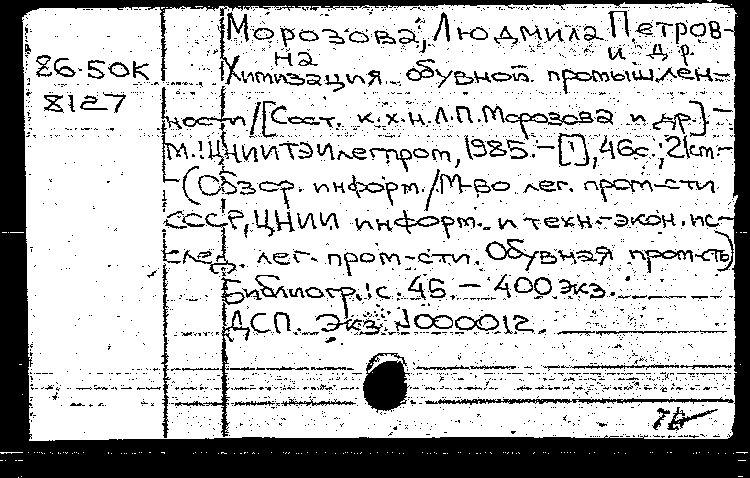 Морозова, Людмила Петров-
на и др
86-50К Химизация обувной промышлен-
8127
ности/[Сост. к.х.н. Л.П. Морозова и др.] -
М.: ЦНИИТЭИлегпром, 1985. - [1], 46с.; 21см-
-(Обзор. информ./М-во лег. пром-сти
СССР, ЦНИИ информ. и техн.-экон. ис-
след. лег. пром-сти. Обувная пром-сть)
Библиогр.: с. 46. - 400 экз.
ДСП. Экз. №000012.